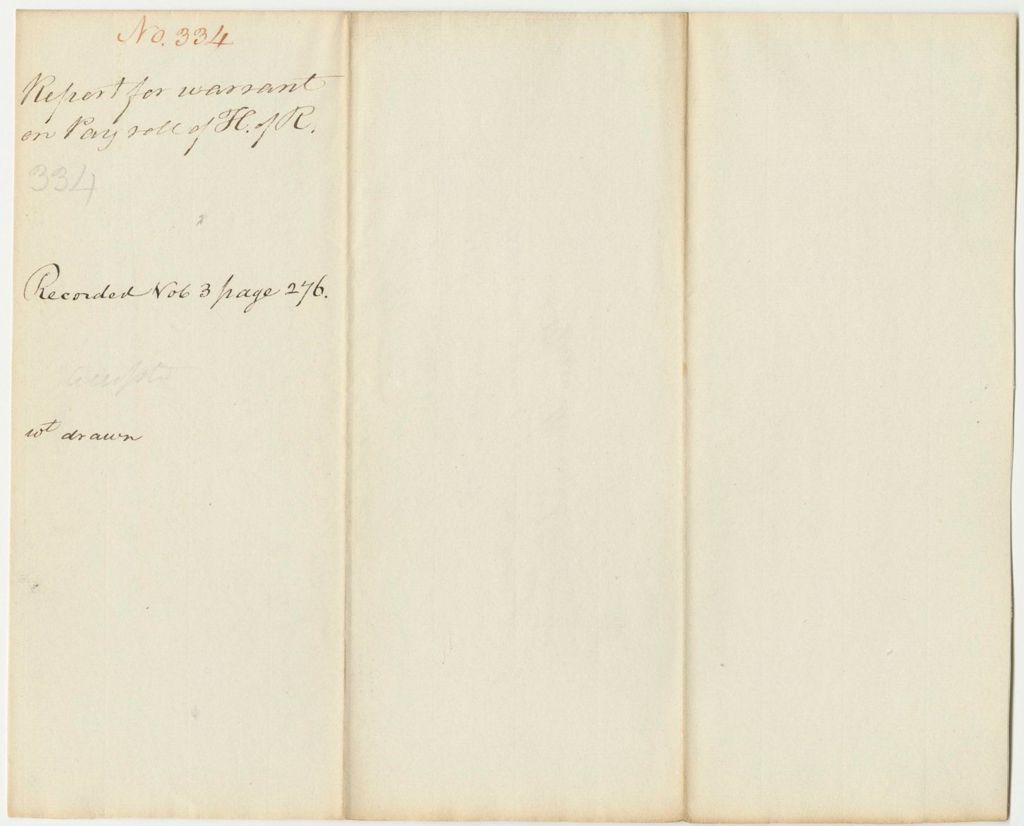 No. 334
Report for warrant
on Pay roll of H. of R.
334
Recorded Vol 3 page 276.
wt drawn